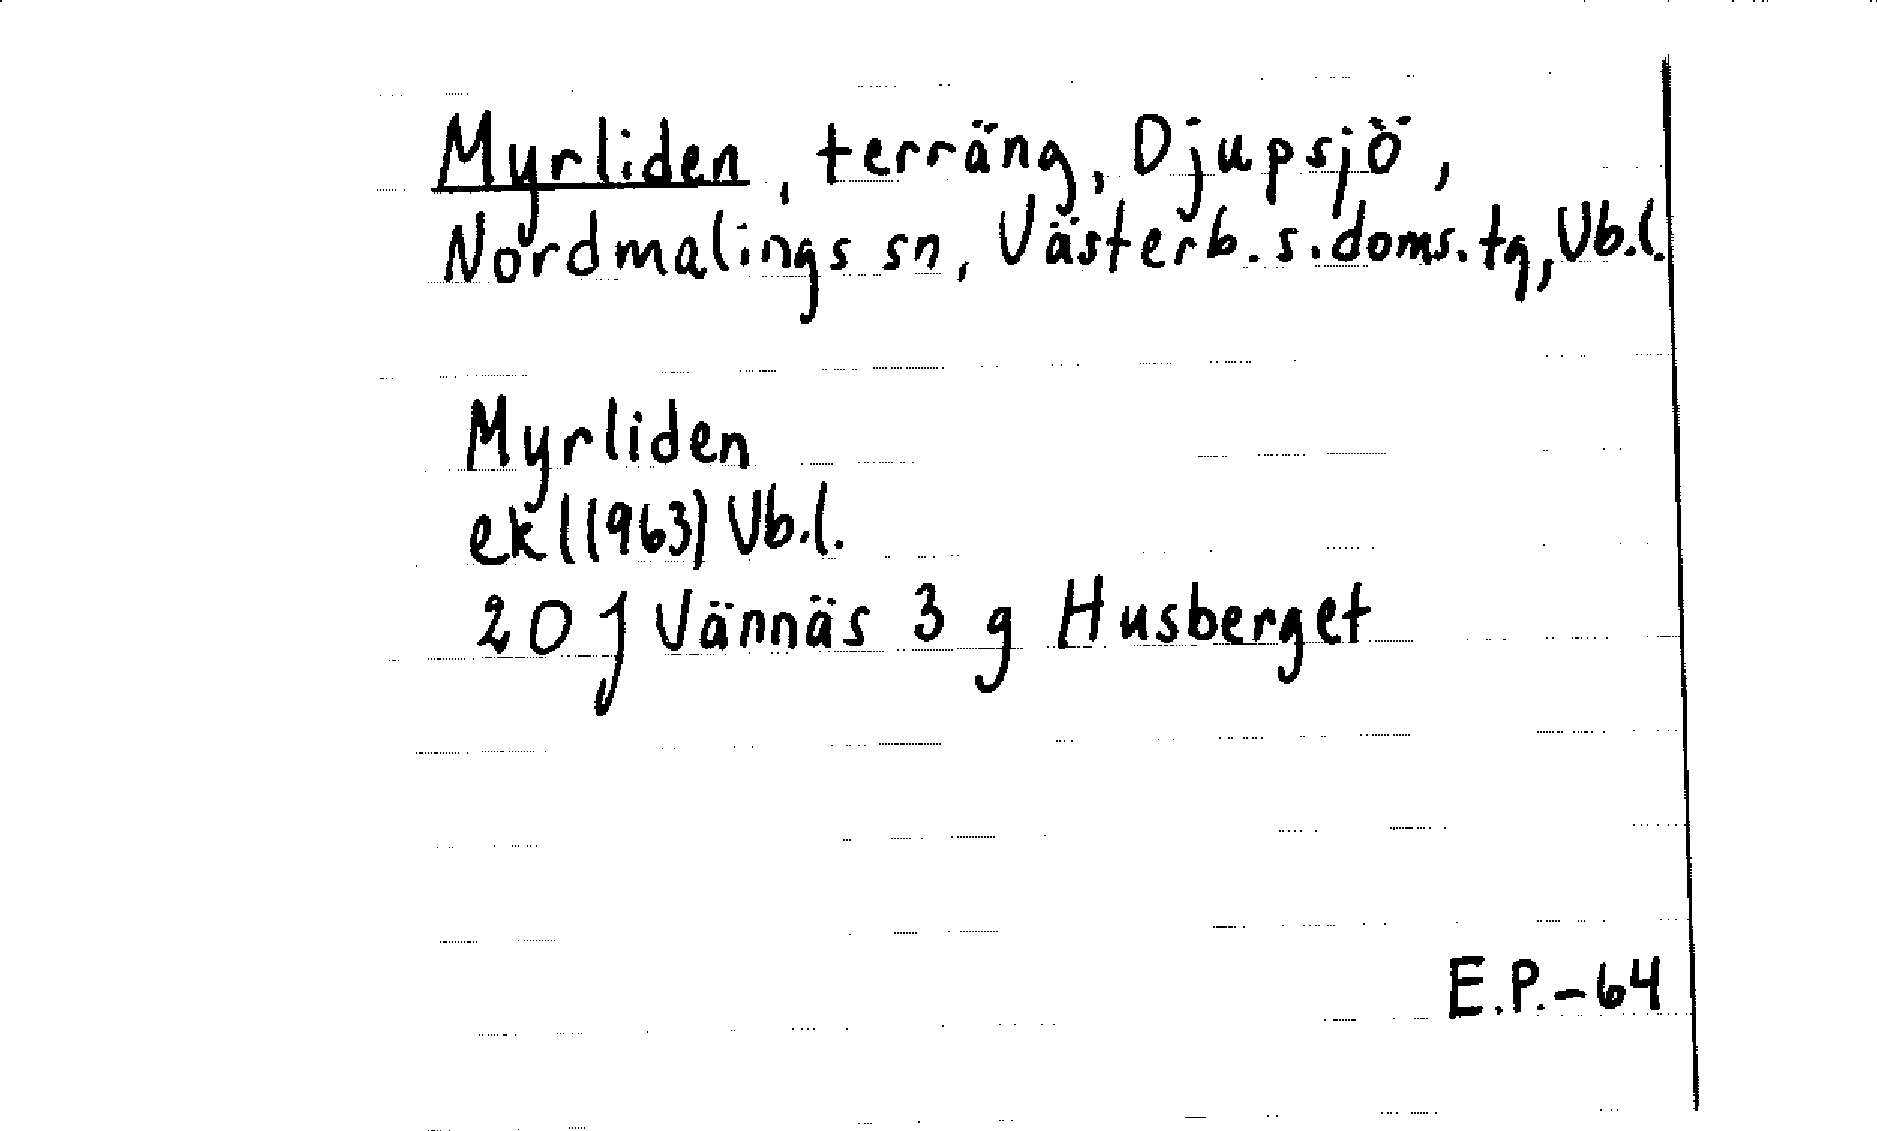 Myrliden, terräng, Djupsjö,
Nordmalings sn, Västerb. s. doms. tg, Vb.l.
Myrliden
ek l (1963) Vb.l.
20 J Vännäs 3 g Husberget
E.P.-64